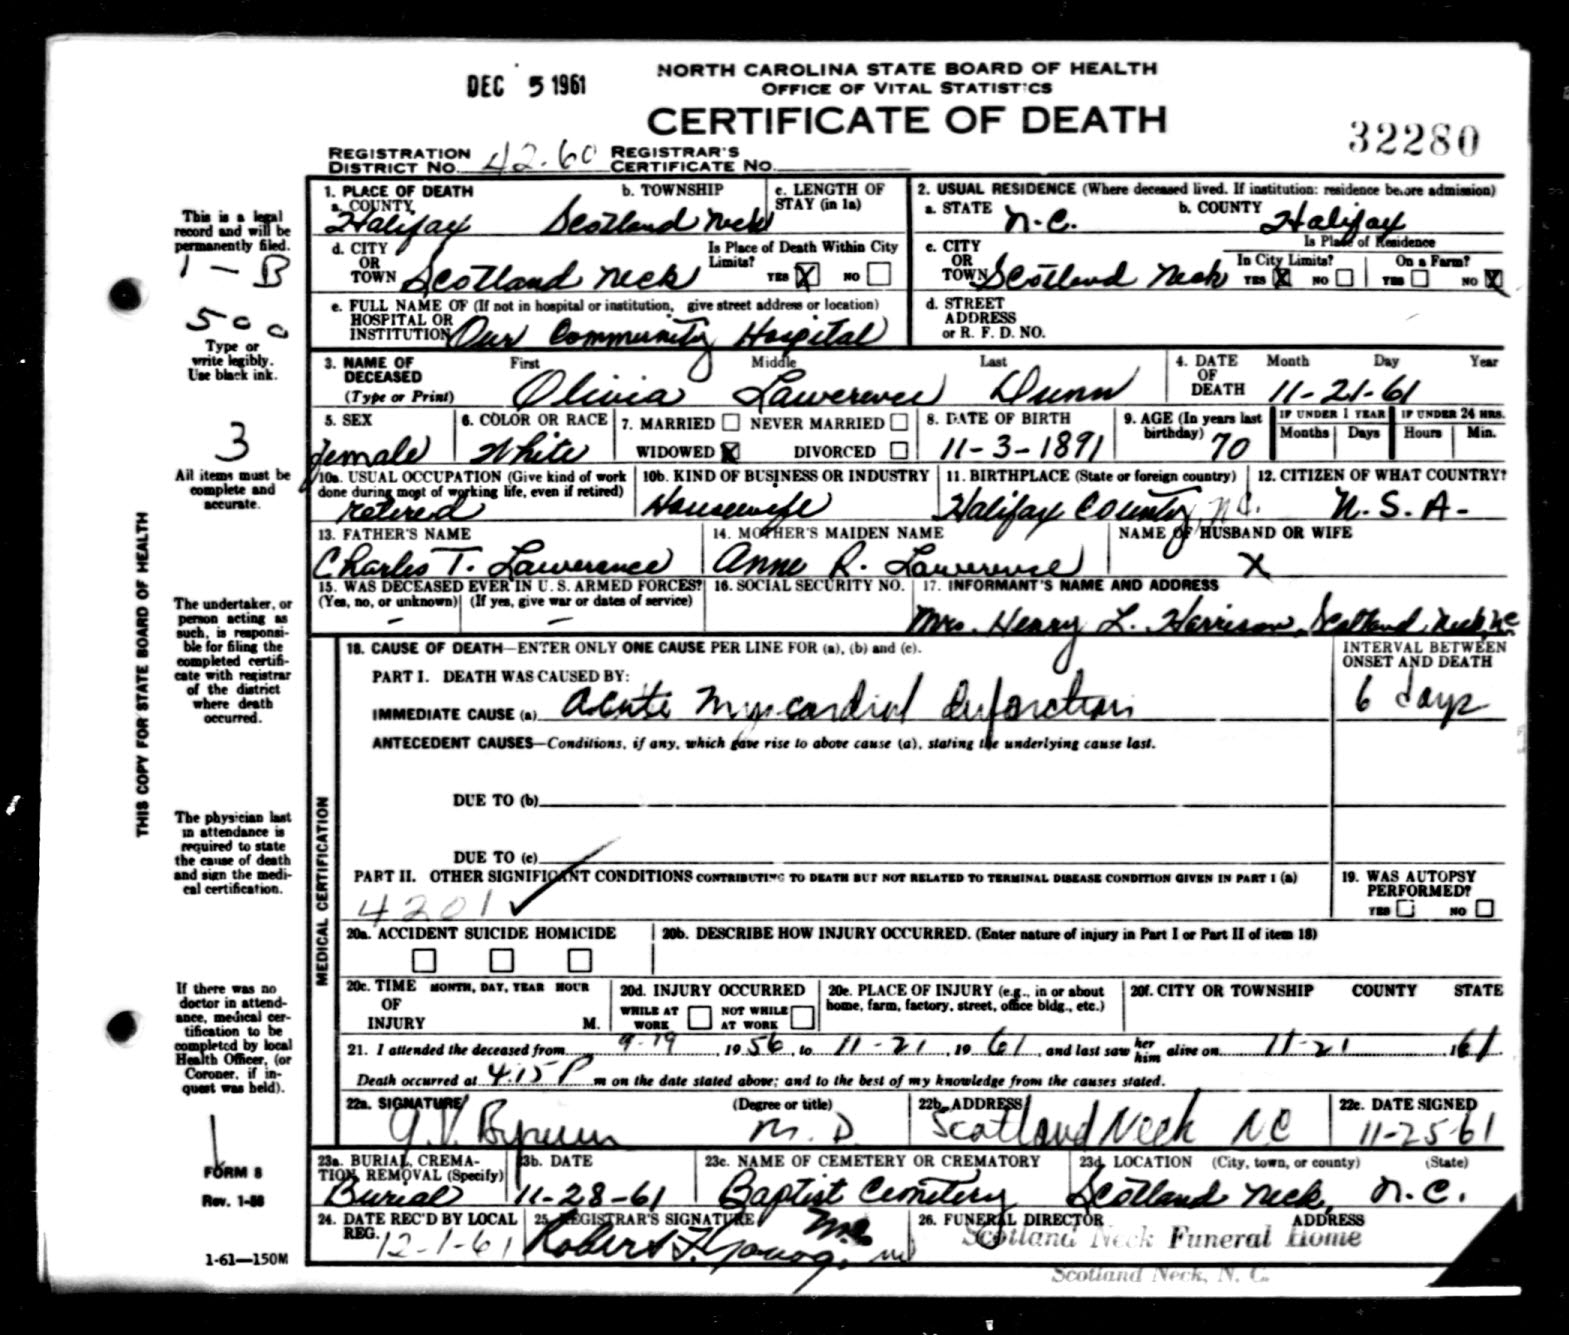 DEC 5 1961
NORTH CAROLINA STATE BOARD OF HEALTH
OFFICE OF VITAL STATISTICS
CERTIFICATE OF DEATH
32280
REGISTRATION DISTRICT NO. 42-60 REGISTRAR'S CERTIFICATE NO.
THIS COPY FOR STATE BOARD OF HEALTH
This is a legal
record and will be
permanently filed.
1-B
500
Type or
write legibly.
Use black ink.
3
All items must be
complete and
accurate.
The undertaker, or
person acting as
such, is responsi-
ble for filing the
completed certifi-
cate with registrar
of the district
where death
occurred.
The physician last
in attendance is
required to state
the cause of death
and sign the medi-
cal certification.
If there was no
doctor in attend-
ance, medical cer-
tification to be
completed by local
Health Officer, (or
Coroner, if in-
quest was held).
FORM 8
Rev. 1-56
1-61—150M
1. PLACE OF DEATH
a. COUNTY Halifax b. TOWNSHIP Scotland Neck c. LENGTH OF STAY (in 1a)
2. USUAL RESIDENCE (Where deceased lived. If institution: residence before admission)
a. STATE N.C. b. COUNTY Halifax
d. CITY OR TOWN Scotland Neck Is Place of Death Within City Limits? YES X NO
c. CITY OR TOWN Scotland Neck Is Place of Residence In City Limits? YES X NO On a Farm? YES NO X
e. FULL NAME OF HOSPITAL OR INSTITUTION (If not in hospital or institution, give street address or location) Our Community Hospital
d. STREET ADDRESS or R. F. D. NO.
3. NAME OF DECEASED (Type or Print) First Middle Last
Olivia Lawerence Dunn
4. DATE OF DEATH Month Day Year
11-21-61
5. SEX female
6. COLOR OR RACE White
7. MARRIED NEVER MARRIED WIDOWED X DIVORCED
8. DATE OF BIRTH 11-3-1891
9. AGE (In years last birthday) 70
IF UNDER 1 YEAR Months Days
IF UNDER 24 HRS. Hours Min.
10a. USUAL OCCUPATION (Give kind of work done during most of working life, even if retired) retired
10b. KIND OF BUSINESS OR INDUSTRY Housewife
11. BIRTHPLACE (State or foreign country) Halifax County, N.C.
12. CITIZEN OF WHAT COUNTRY? U.S.A.
13. FATHER'S NAME Charles T. Lawerence
14. MOTHER'S MAIDEN NAME Anne R. Lawerence
NAME OF HUSBAND OR WIFE X
15. WAS DECEASED EVER IN U.S. ARMED FORCES?
(Yes, no, or unknown) (If yes, give war or dates of service)
- -
16. SOCIAL SECURITY NO.
17. INFORMANT'S NAME AND ADDRESS
Mrs. Henry L. Harrison, Scotland Neck, NC
MEDICAL CERTIFICATION
18. CAUSE OF DEATH—ENTER ONLY ONE CAUSE PER LINE FOR (a), (b) and (c).
INTERVAL BETWEEN ONSET AND DEATH
PART I. DEATH WAS CAUSED BY:
IMMEDIATE CAUSE (a) Acute Myocardial Infarction 6 days
ANTECEDENT CAUSES—Conditions, if any, which gave rise to above cause (a), stating the underlying cause last.
DUE TO (b)
DUE TO (c)
PART II. OTHER SIGNIFICANT CONDITIONS CONTRIBUTING TO DEATH BUT NOT RELATED TO TERMINAL DISEASE CONDITION GIVEN IN PART I (a)
4201
19. WAS AUTOPSY PERFORMED? YES NO
20a. ACCIDENT SUICIDE HOMICIDE
20b. DESCRIBE HOW INJURY OCCURRED. (Enter nature of injury in Part I or Part II of item 18)
20c. TIME OF INJURY MONTH, DAY, YEAR HOUR M.
20d. INJURY OCCURRED WHILE AT WORK NOT WHILE AT WORK
20e. PLACE OF INJURY (e.g., in or about home, farm, factory, street, office bldg., etc.)
20f. CITY OR TOWNSHIP COUNTY STATE
21. I attended the deceased from 9-19, 1956, to 11-21, 1961, and last saw her him alive on 11-21 1961
Death occurred at 4:15 P m on the date stated above; and to the best of my knowledge from the causes stated.
22a. SIGNATURE (Degree or title) M.D.
22b. ADDRESS Scotland Neck NC
22c. DATE SIGNED 11-25-61
23a. BURIAL, CREMATION, REMOVAL (Specify) Burial
23b. DATE 11-28-61
23c. NAME OF CEMETERY OR CREMATORY Baptist Cemetery
23d. LOCATION (City, town, or county) (State) Scotland Neck, N.C.
24. DATE REC'D BY LOCAL REG. 12-1-61
25. REGISTRAR'S SIGNATURE Robert F. Young, md
26. FUNERAL DIRECTOR ADDRESS
Scotland Neck Funeral Home
Scotland Neck, N. C.